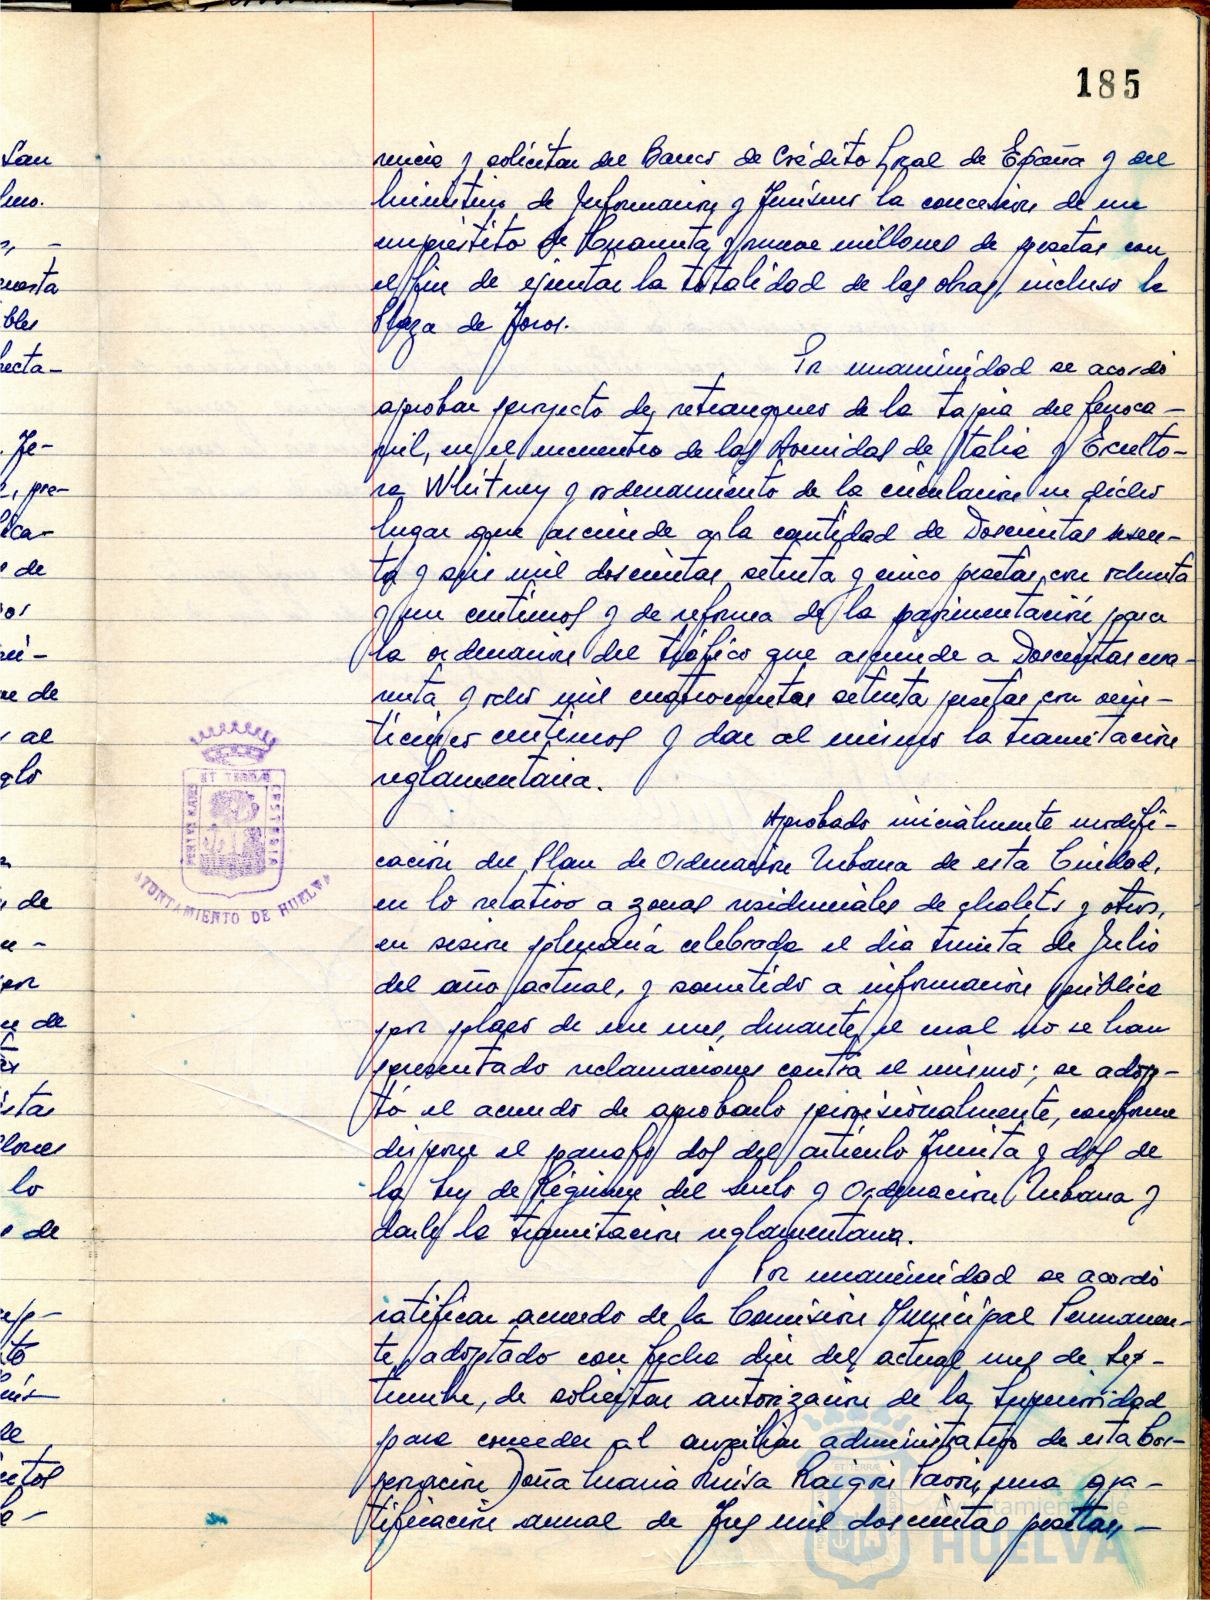 185
rencia y solicitar del Banco de Crédito Local de España y del
Ministerio de Información y Turismo la concesión de un
empréstito de Cuarenta y nueve millones de pesetas con
el fin de ejecutar la totalidad de las obras, incluso la
Plaza de Toros.
Por unanimidad se acordó
aprobar proyecto de retranqueo de la tapia del ferroca-
rril, en el encuentro de las Avenidas de Italia y Esculto-
ra Whitney y ordenamiento de la circulación en dicho
lugar que asciende a la cantidad de Doscientas sesen-
ta y seis mil doscientas setenta y cinco pesetas con ochenta
y un centimos y de reforma de la pavimentación para
la ordenación del tráfico que asciende a Doscientas cua-
renta y ocho mil cuatrocientas setenta pesetas con vein-
ticinco centimos y dar al mismo la tramitación
reglamentaria.
Aprobado inicialmente modifi-
cación del Plan de Ordenación Urbana de esta Ciudad,
en lo relativo a zonas residenciales de chalets y otros,
en sesión plenaria celebrada el dia treinta de Julio
del año actual, y sometido a información pública
por plazo de un mes, durante el cual no se han
presentado reclamaciones contra el mismo; se adop-
tó el acuerdo de aprobarlo provisionalmente, conforme
dispone el parrafo dos del artículo Treinta y dos de
la Ley de Régimen del Suelo y Ordenación Urbana y
darle la tramitación reglamentaria.
Por unanimidad se acordó
ratificar acuerdo de la Comisión Municipal Permanen-
te, adoptado con fecha diez del actual mes de Sep-
tiembre, de solicitar autorización de la Superioridad
para conceder al auxiliar administrativo de esta Cor-
poración Doña Maria Luisa una gra-
tificación anual de Tres mil doscientas pesetas,-
AYUNTAMIENTO DE HUELVA
Ayuntamiento de
HUELVA
San
cuesta
bles
recta-
Fe-
, pre-
ica-
de
ne de
al
glo
de
por
de
istas
lones
lo
de